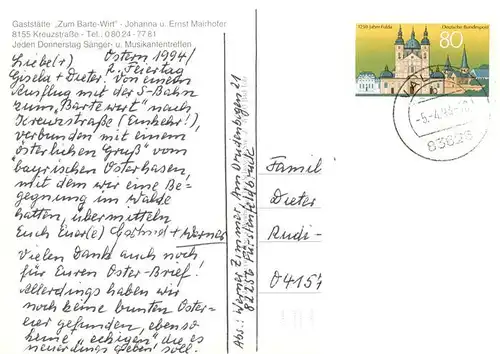 Gaststätte "Zum Barte-Wirt" - Johanna u. Ernst Mairhofer
8155 Kreuzstraße - Tel.: 08024-7761
Jeden Donnerstag Sänger- u. Musikantentreffen
Ostern 1994/
2. Feiertag
Liebe(r)
Gisela + Dieter. Von einem
Ausflug mit der S-Bahn
zum "Bartewirt" nach
Kreuzstraße (Einkehr!),
verbunden mit einem
österlichen Gruß vom
bayrischen Osterhasen,
mit dem wir eine Be-
gegnung im Walde
hatten, übermitteln
Euch Eure(r) + Werner
Vielen Dank auch noch
für Euren Oster-Brief!
Allerdings haben wir
noch keine bunten Oster-
eier gefunden, ebenso
keine "eckigen" die es
neuerdings geben soll.
Abs.: Werner Zimmer, Am 21
82256 Fürstenfeldbruck
1250 Jahre Fulda
Deutsche Bundespost
80
-5.4.94
83626
Famil
Dieter
Rudi-
0415